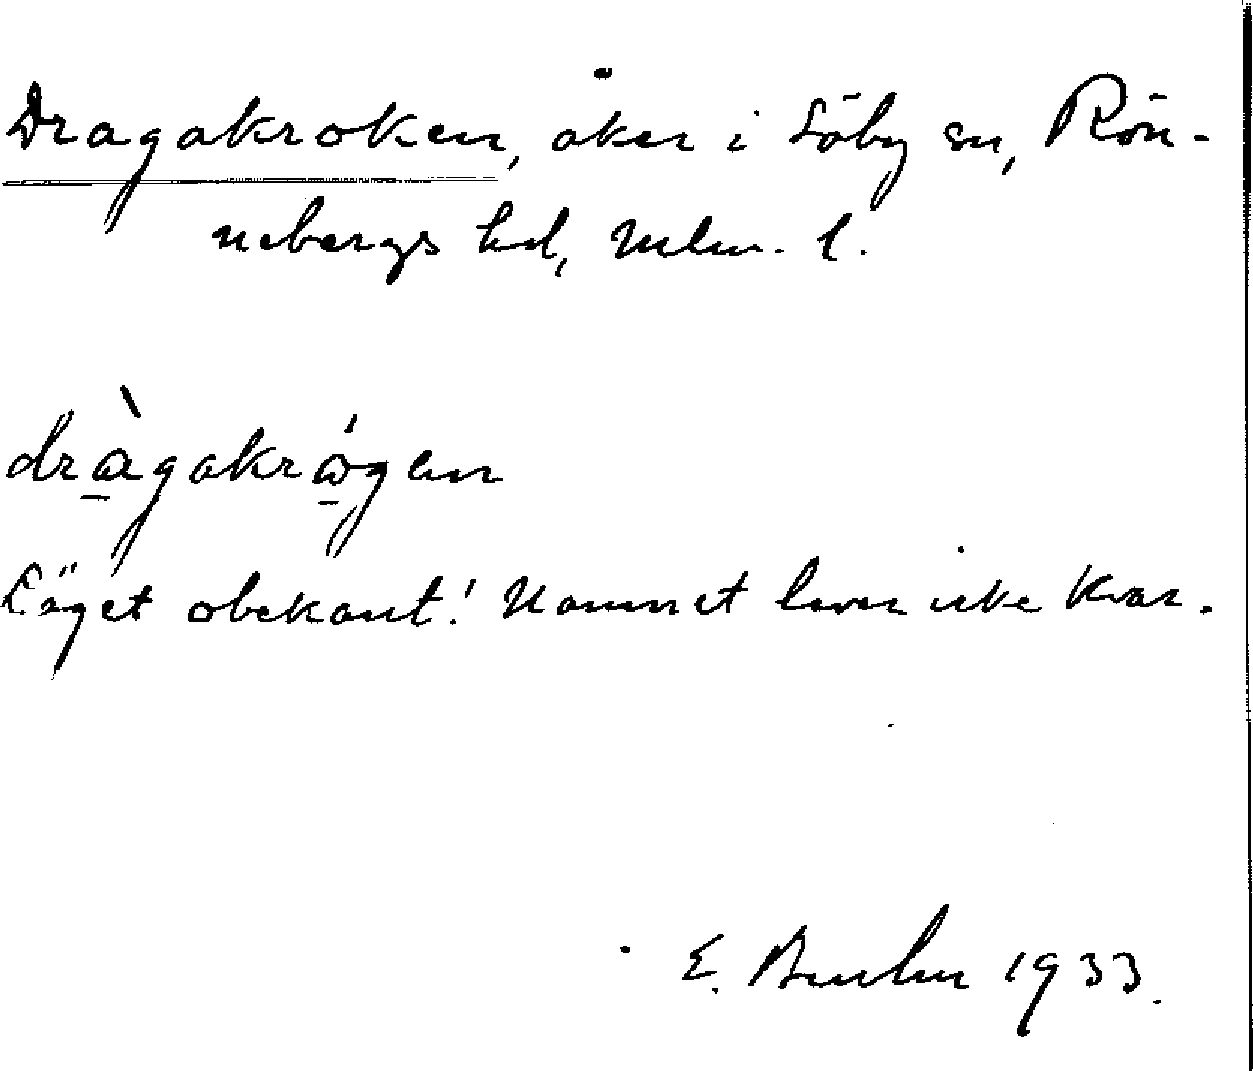 Dragakroken, åker i Säby sn, Rön-
nebergs hd, Malm. l.
dràgakrǻgen
Läget obekant! Namnet lever icke kvar.
E. 1933.